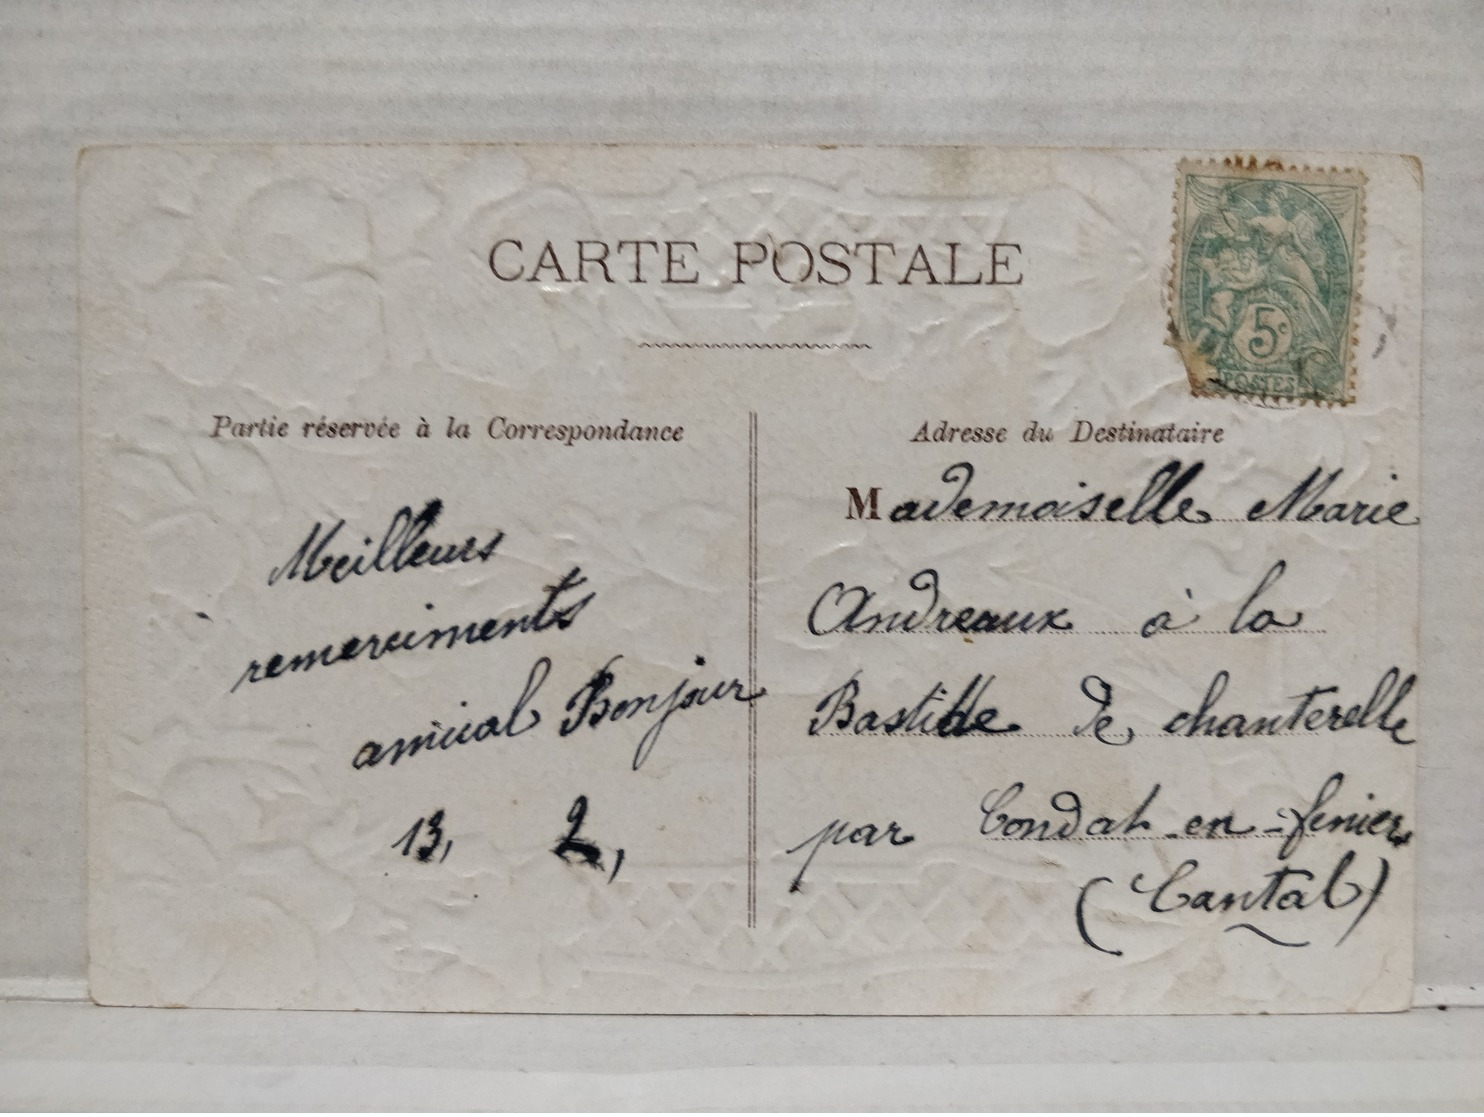 CARTE POSTALE
5c
POSTES
Partie réservée à la Correspondance
Meilleurs
remerciments
amical Bonjour
13, 2,
Adresse du Destinataire
Mademoiselle Marie
Andreaux à la
Bastide de chanterelle
par Condat-en-fenier
(Cantal)